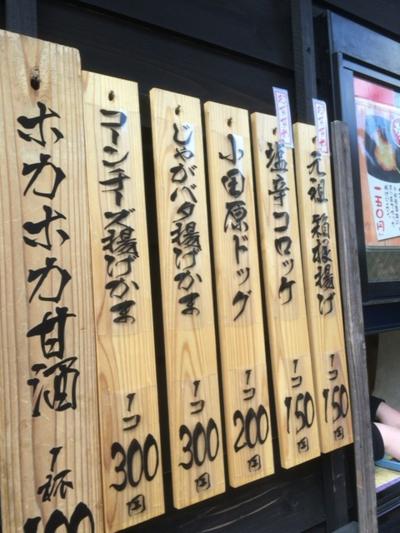 元祖 箱根揚げ 1コ 150円
塩辛コロッケ 1コ 150円
小田原ドッグ 1コ 200円
じゃがバタ揚げかま 1コ 300円
コーンチーズ揚げかま 1コ 300円
ホカホカ甘酒 1杯
一五〇円